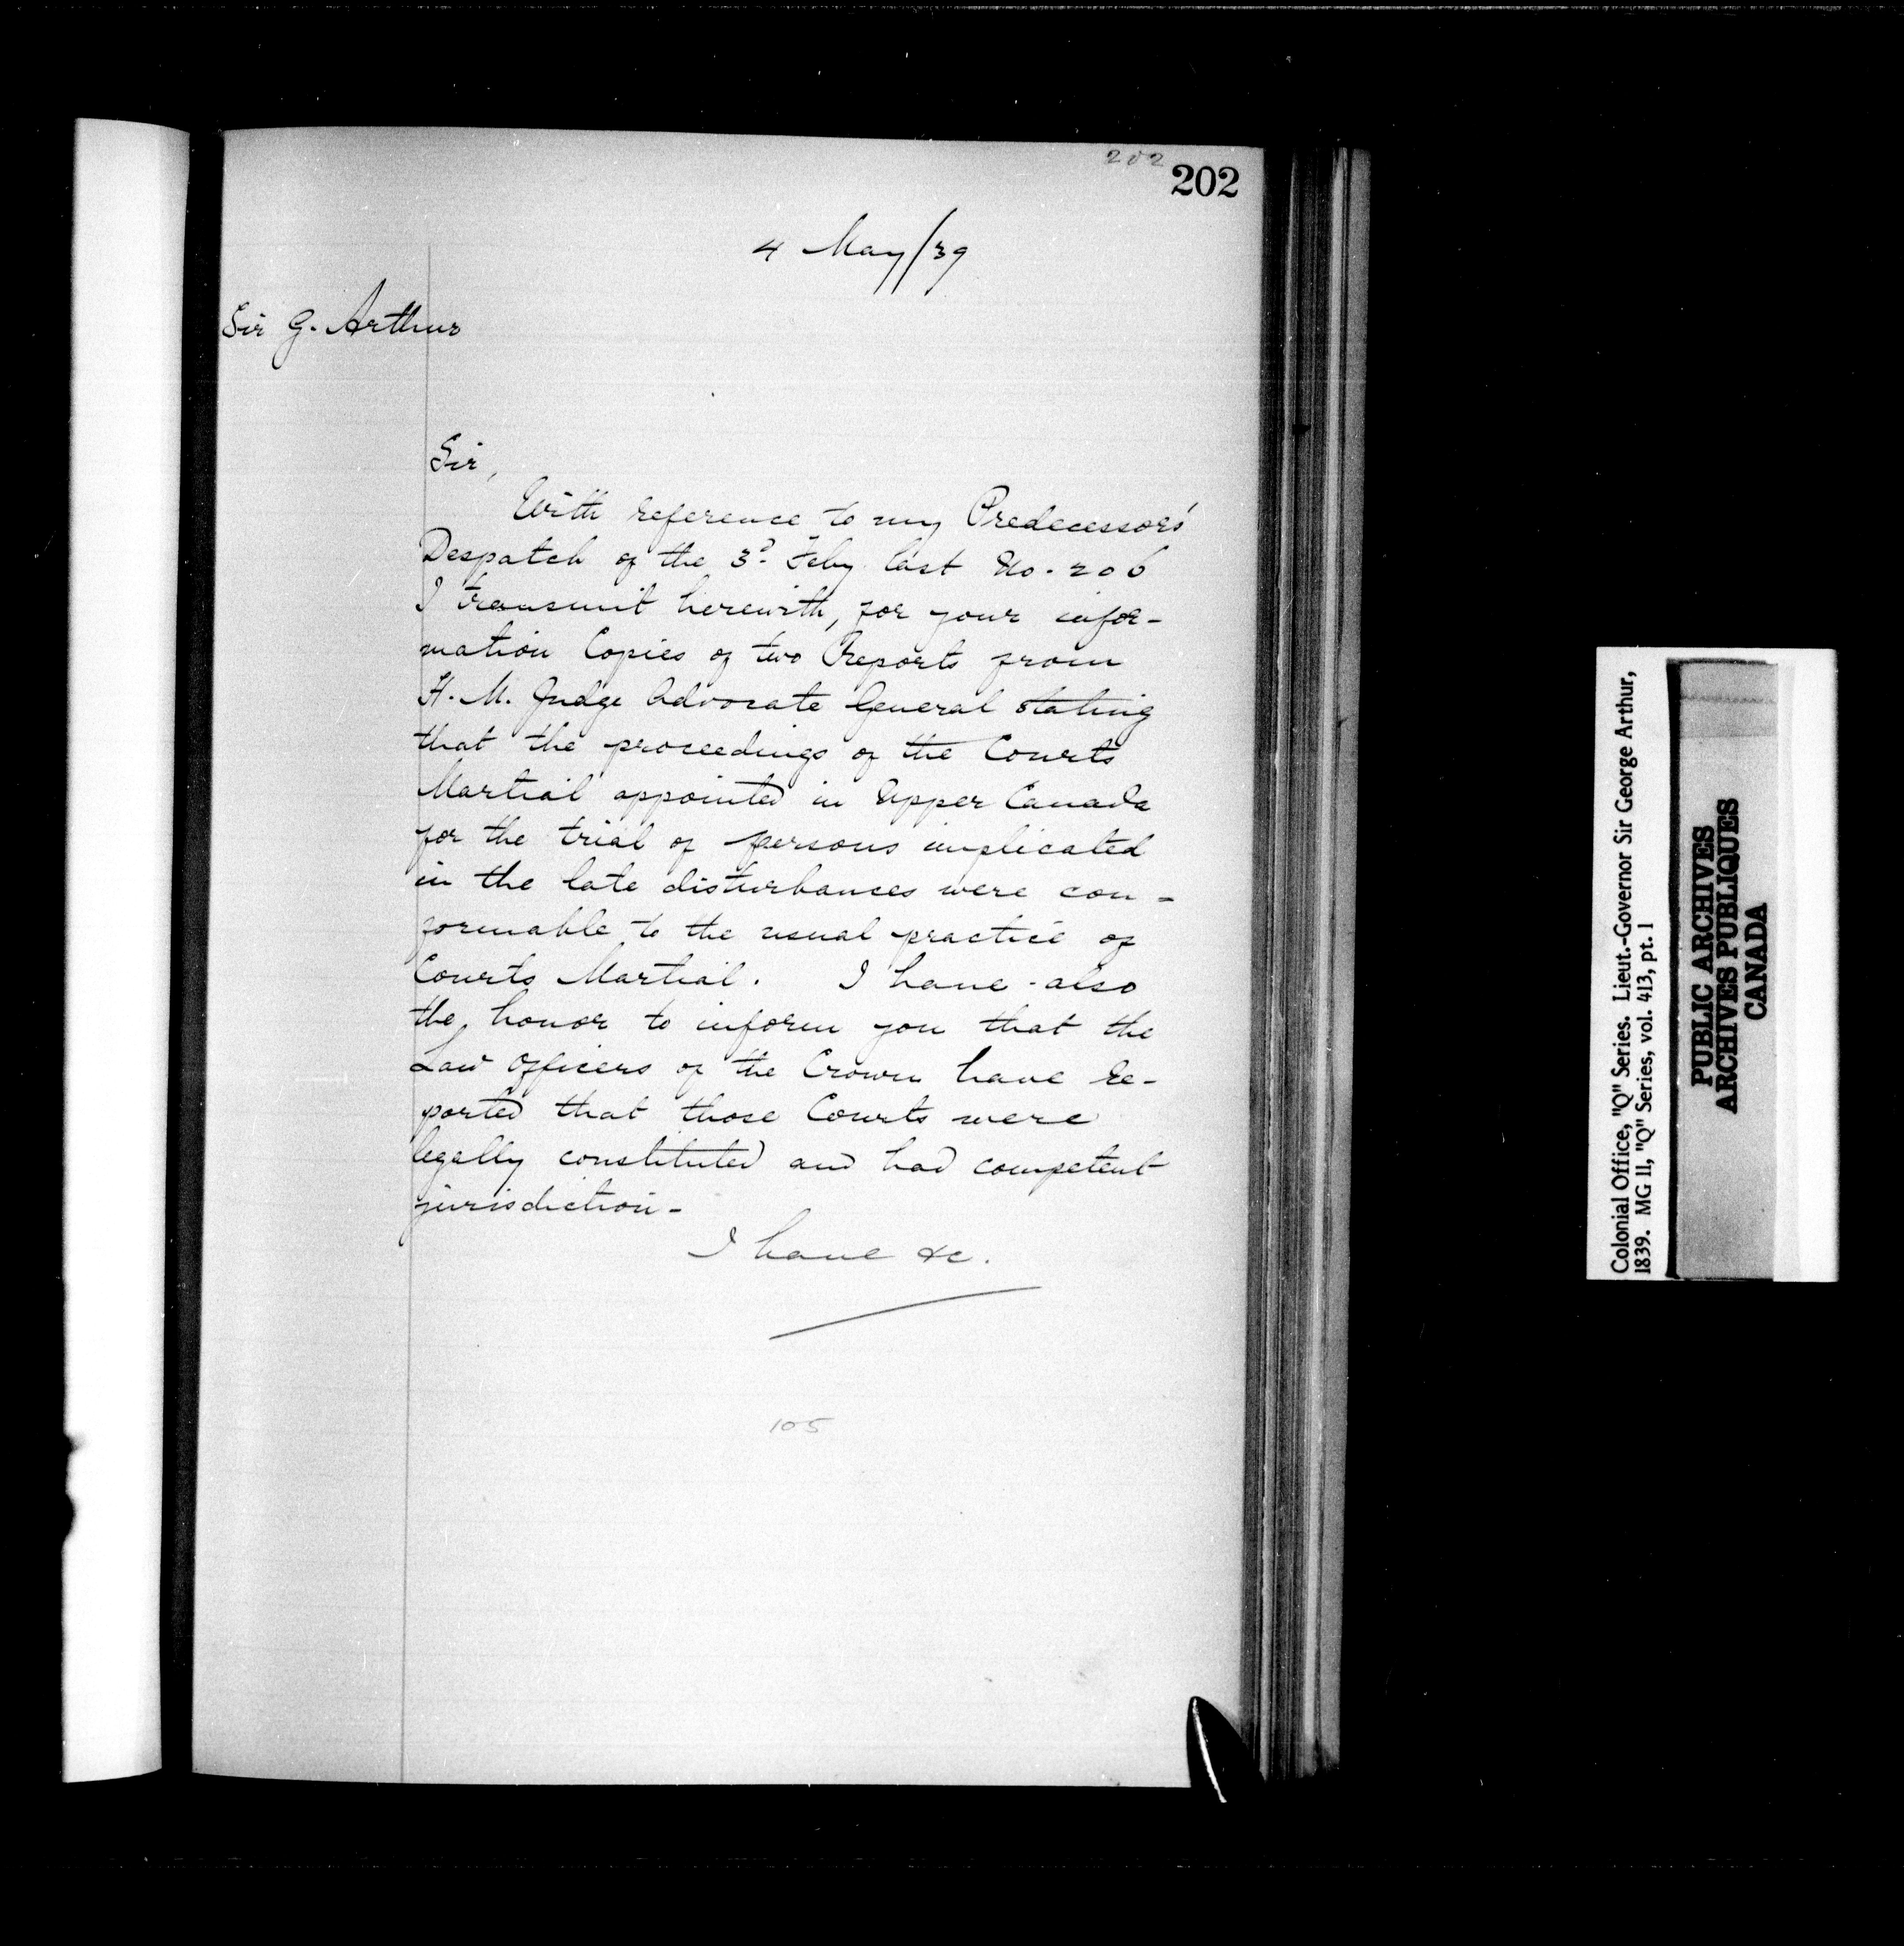 202
202
4 May/39
Sir G. Arthur
Sir,
With reference to my Predecessors'
Despatch of the 3d. Feby. last No. 206
I transmit herewith, for your infor-
mation Copies of two Reports from
H. M. Judge Advocate General stating
that the proceedings of the Courts
Martial appointed in Upper Canada
for the trial of persons implicated
in the late disturbances were con-
formable to the usual practice of
Courts Martial. I have also
the honor to inform you that the
Law Officers of the Crown have re-
ported that those Courts were
legally constituted and had competent
jurisdiction-
I have &c.
105
Colonial Office, "Q" Series. Lieut.-Governor Sir George Arthur,
1839. MG 11, "Q" Series, vol. 413, pt. 1
PUBLIC ARCHIVES
ARCHIVES PUBLIQUES
CANADA